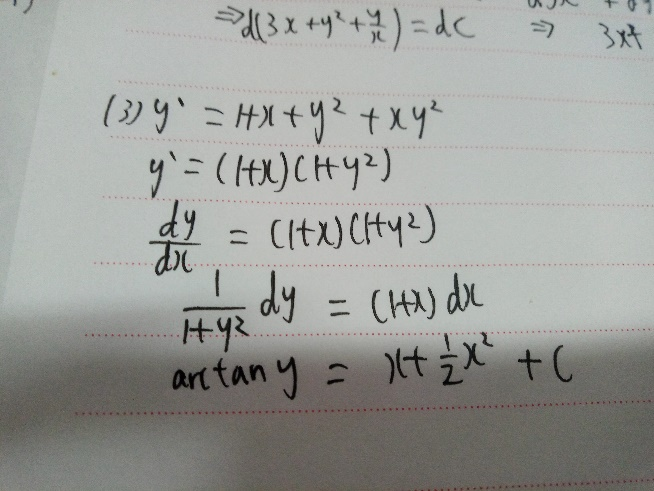 ⇒d(3x+y²+y/x)=dC ⇒ 3x+
(3) y` = 1+x+y²+xy²
y`=(1+x)(1+y²)
dy/dx = (1+x)(1+y²)
1/(1+y²) dy = (1+x) dx
arctan y = x+½x² +C